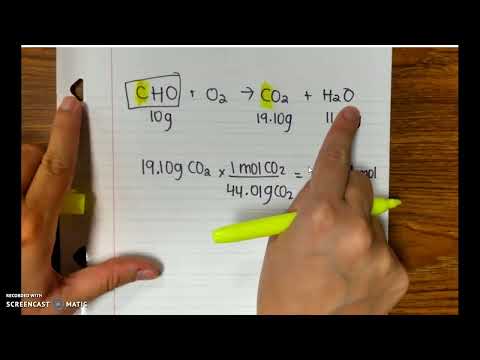 CHO + O2 → CO2 + H2O
10g 19.10g
19.10g CO2 × 1 mol CO2 =
44.01g CO2
RECORDED WITH
SCREENCAST MATIC